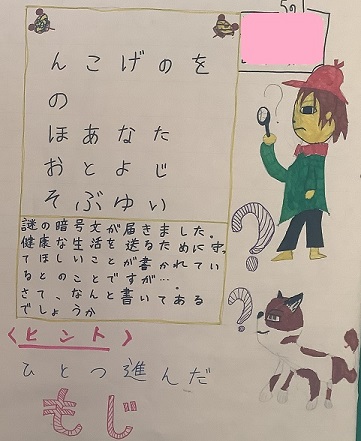 んこげのを
の
ほあなた
おとよじ
そぶゆい
謎の暗号文が届きました。
健康な生活を送るために守っ
てほしいことが書かれてい
るとのことですが…。
さて、なんと書いてある
でしょうか
〈ヒント〉
ひとつ進んだ
もじ